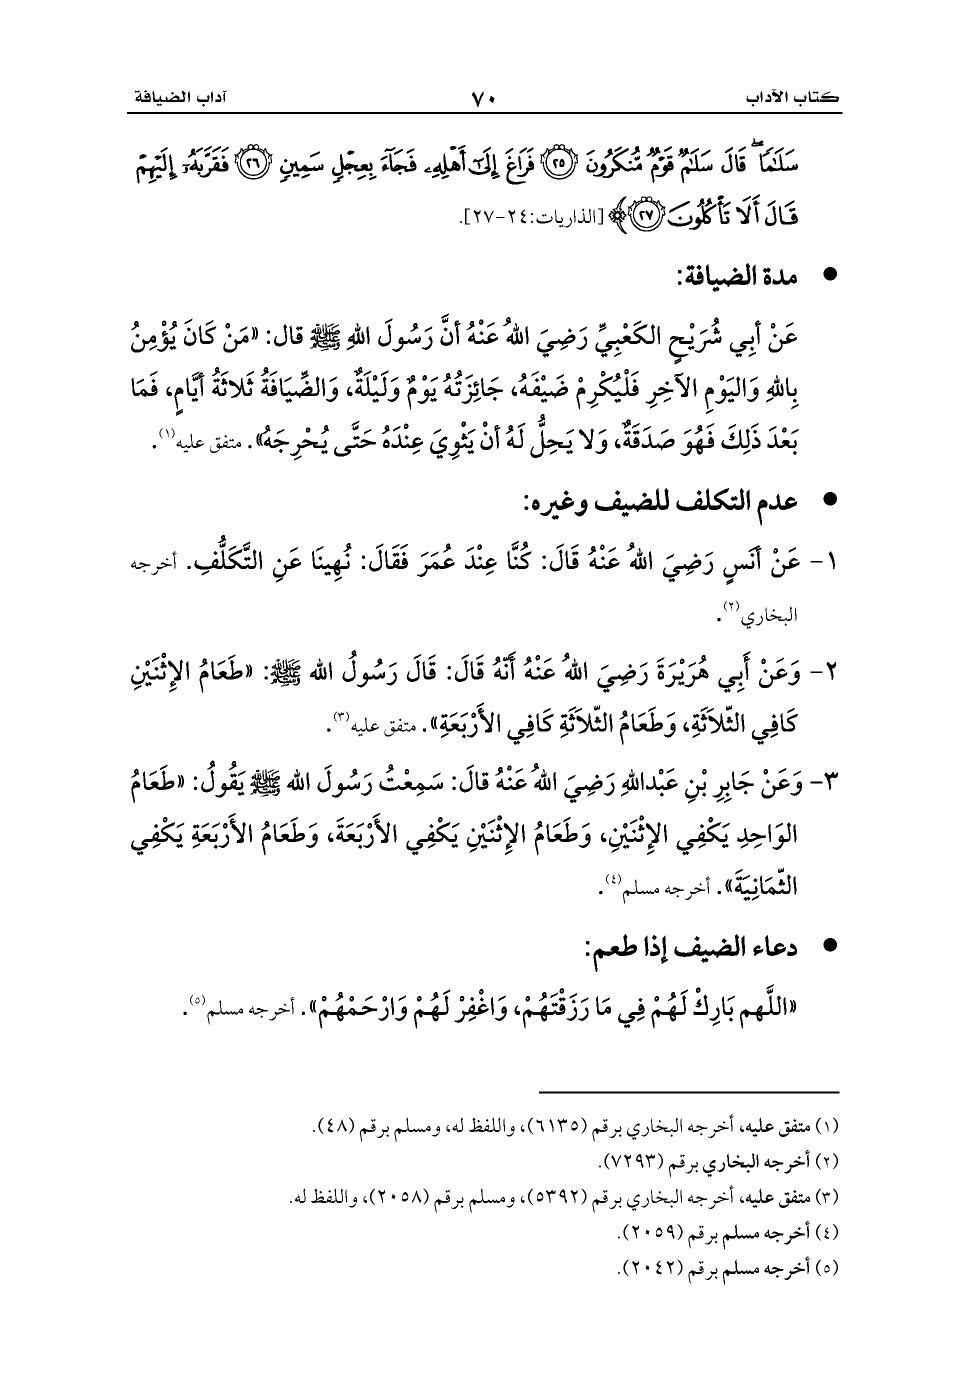 كتاب الآداب ٧٠ آداب الضيافة
سَلَٰمٗاۖ قَالَ سَلَٰمٞ قَوۡمٞ مُّنكَرُونَ ۝٢٥ فَرَاغَ إِلَىٰٓ أَهۡلِهِۦ فَجَآءَ بِعِجۡلٖ سَمِينٖ ۝٢٦ فَقَرَّبَهُۥٓ إِلَيۡهِمۡ
قَالَ أَلَا تَأۡكُلُونَ ۝٢٧﴾ [الذاريات:٢٤-٢٧].
● مدة الضيافة:
عَنْ أبِي شُرَيْحٍ الكَعْبِيِّ رَضِيَ اللهُ عَنْهُ أنَّ رَسُولَ اللهِ ﷺ قال: «مَنْ كَانَ يُؤْمِنُ
بِاللهِ وَاليَوْمِ الآخِرِ فَلْيُكْرِمْ ضَيْفَهُ، جَائِزَتُهُ يَوْمٌ وَلَيْلَةٌ، وَالضِّيَافَةُ ثَلاثَةُ أيَّامٍ، فَمَا
بَعْدَ ذَلِكَ فَهُوَ صَدَقَةٌ، وَلا يَحِلُّ لَهُ أنْ يَثْوِيَ عِنْدَهُ حَتَّى يُحْرِجَهُ». متفق عليه(١).
● عدم التكلف للضيف وغيره:
١- عَنْ أنَسٍ رَضِيَ اللهُ عَنْهُ قَالَ: كُنَّا عِنْدَ عُمَرَ فَقَالَ: نُهِينَا عَنِ التَّكَلُّفِ. أخرجه
البخاري(٢).
٢- وَعَنْ أَبِي هُرَيْرَةَ رَضِيَ اللهُ عَنْهُ أَنّهُ قَالَ: قَالَ رَسُولُ الله ﷺ: «طَعَامُ الإثْنَيْنِ
كَافِي الثّلاَثَةِ، وَطَعَامُ الثّلاَثَةِ كَافِي الأَرْبَعَةِ». متفق عليه(٣).
٣- وَعَنْ جَابِرِ بْنِ عَبْدِاللهِ رَضِيَ اللهُ عَنْهُ قالَ: سَمِعْتُ رَسُولَ الله ﷺ يَقُولُ: «طَعَامُ
الوَاحِدِ يَكْفِي الإثْنَيْنِ، وَطَعَامُ الإثْنَيْنِ يَكْفِي الأَرْبَعَةَ، وَطَعَامُ الأَرْبَعَةِ يَكْفِي
الثّمَانِيَةَ». أخرجه مسلم(٤).
● دعاء الضيف إذا طعم:
«اللَّهم بَارِكْ لَهُمْ فِي مَا رَزَقْتَهُمْ، وَاغْفِرْ لَهُمْ وَارْحَمْهُمْ». أخرجه مسلم(٥).
(١) متفق عليه، أخرجه البخاري برقم (٦١٣٥)، واللفظ له، ومسلم برقم (٤٨).
(٢) أخرجه البخاري برقم (٧٢٩٣).
(٣) متفق عليه، أخرجه البخاري برقم (٥٣٩٢)، ومسلم برقم (٢٠٥٨)، واللفظ له.
(٤) أخرجه مسلم برقم (٢٠٥٩).
(٥) أخرجه مسلم برقم (٢٠٤٢).